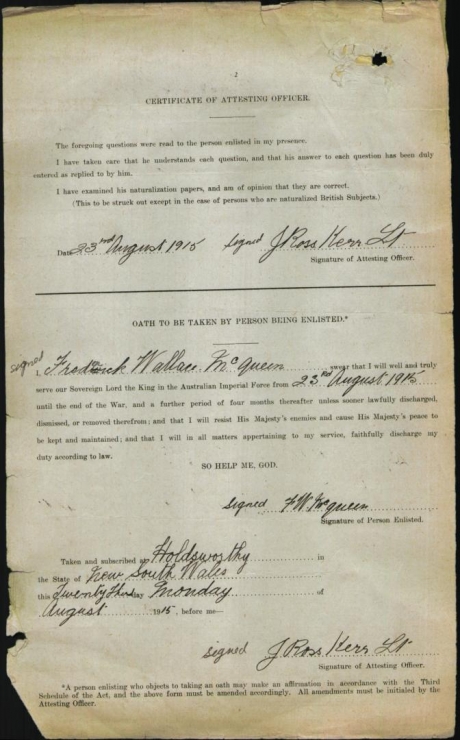 2
CERTIFICATE OF ATTESTING OFFICER.
The foregoing questions were read to the person enlisted in my presence.
I have taken care that he understands each question, and that his answer to each question has been duly
entered as replied to by him.
I have examined his naturalization papers, and am of opinion that they are correct.
(This to be struck out except in the case of persons who are naturalized British Subjects.)
Date 23rd August 1915 signed J Ross Kerr Lt
Signature of Attesting Officer.
OATH TO BE TAKEN BY PERSON BEING ENLISTED.*
signed
I, Fredrick Wallace McQueen swear that I will well and truly
serve our Sovereign Lord the King in the Australian Imperial Force from 23rd August 1915
until the end of the War, and a further period of four months thereafter unless sooner lawfully discharged,
dismissed, or removed therefrom; and that I will resist His Majesty's enemies and cause His Majesty's peace to
be kept and maintained; and that I will in all matters appertaining to my service, faithfully discharge my
duty according to law.
SO HELP ME, GOD.
signed F W McQueen
Signature of Person Enlisted.
Taken and subscribed at Holdsworthy in
the State of New South Wales
this Twenty Third day Monday of
August 1915, before me—
signed J Ross Kerr Lt
Signature of Attesting Officer.
*A person enlisting who objects to taking an oath may make an affirmation in accordance with the Third
Schedule of the Act, and the above form must be amended accordingly. All amendments must be initialed by the
Attesting Officer.